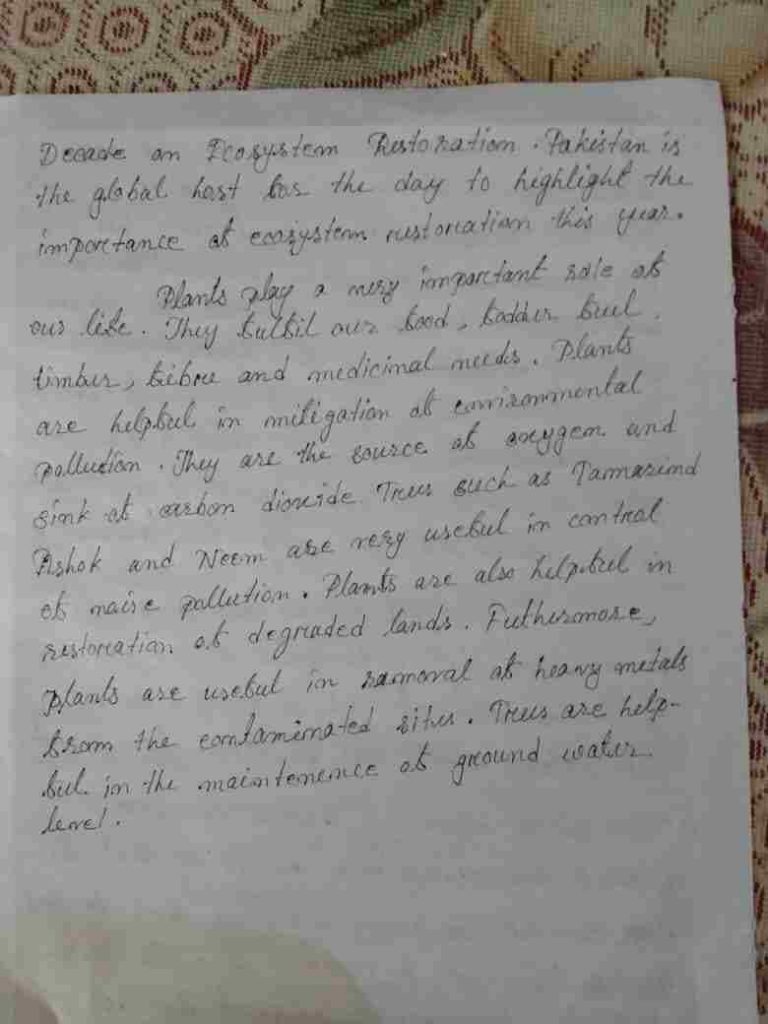 Decade on Ecosystem Restoration. Pakistan is
the global host for the day to highlight the
importance of ecosystem restoration this year.
Plants play a very important role of
our life. They fulfil our food, fodder fuel,
timber, fibre and medicinal needs. Plants
are helpful in mitigation of environmental
pollution. They are the source of oxygen and
sink of carbon dioxide Trees such as Tammarind
Ashok and Neem are very useful in control
of noise pollution. Plants are also helpful in
restoration of degraded lands. Futhermore,
Plants are useful in ramoval of heavy metals
from the contaminated sites. Trees are help-
ful in the maintenence of ground water
level.